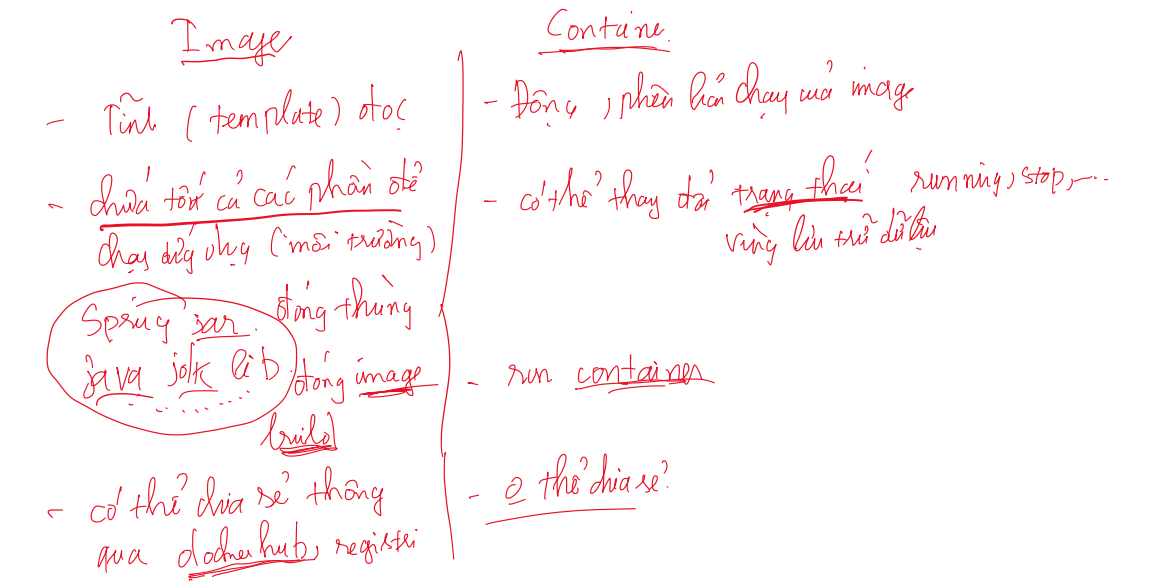 Image
- Tĩnh (template) đọc
- chứa tất cả các phần để
chạy ứng dụng (môi trường)
Spring jar.
java jdk lib
đóng thùng
đóng image
build
- có thể chia sẻ thông
qua dockerhub, registri
Containe.
- Động, phiên bản chạy của image
- có thể thay đổi trạng thái running, stop,...
vùng lưu trữ dữ liệu
- run container
- 0 thể chia sẻ